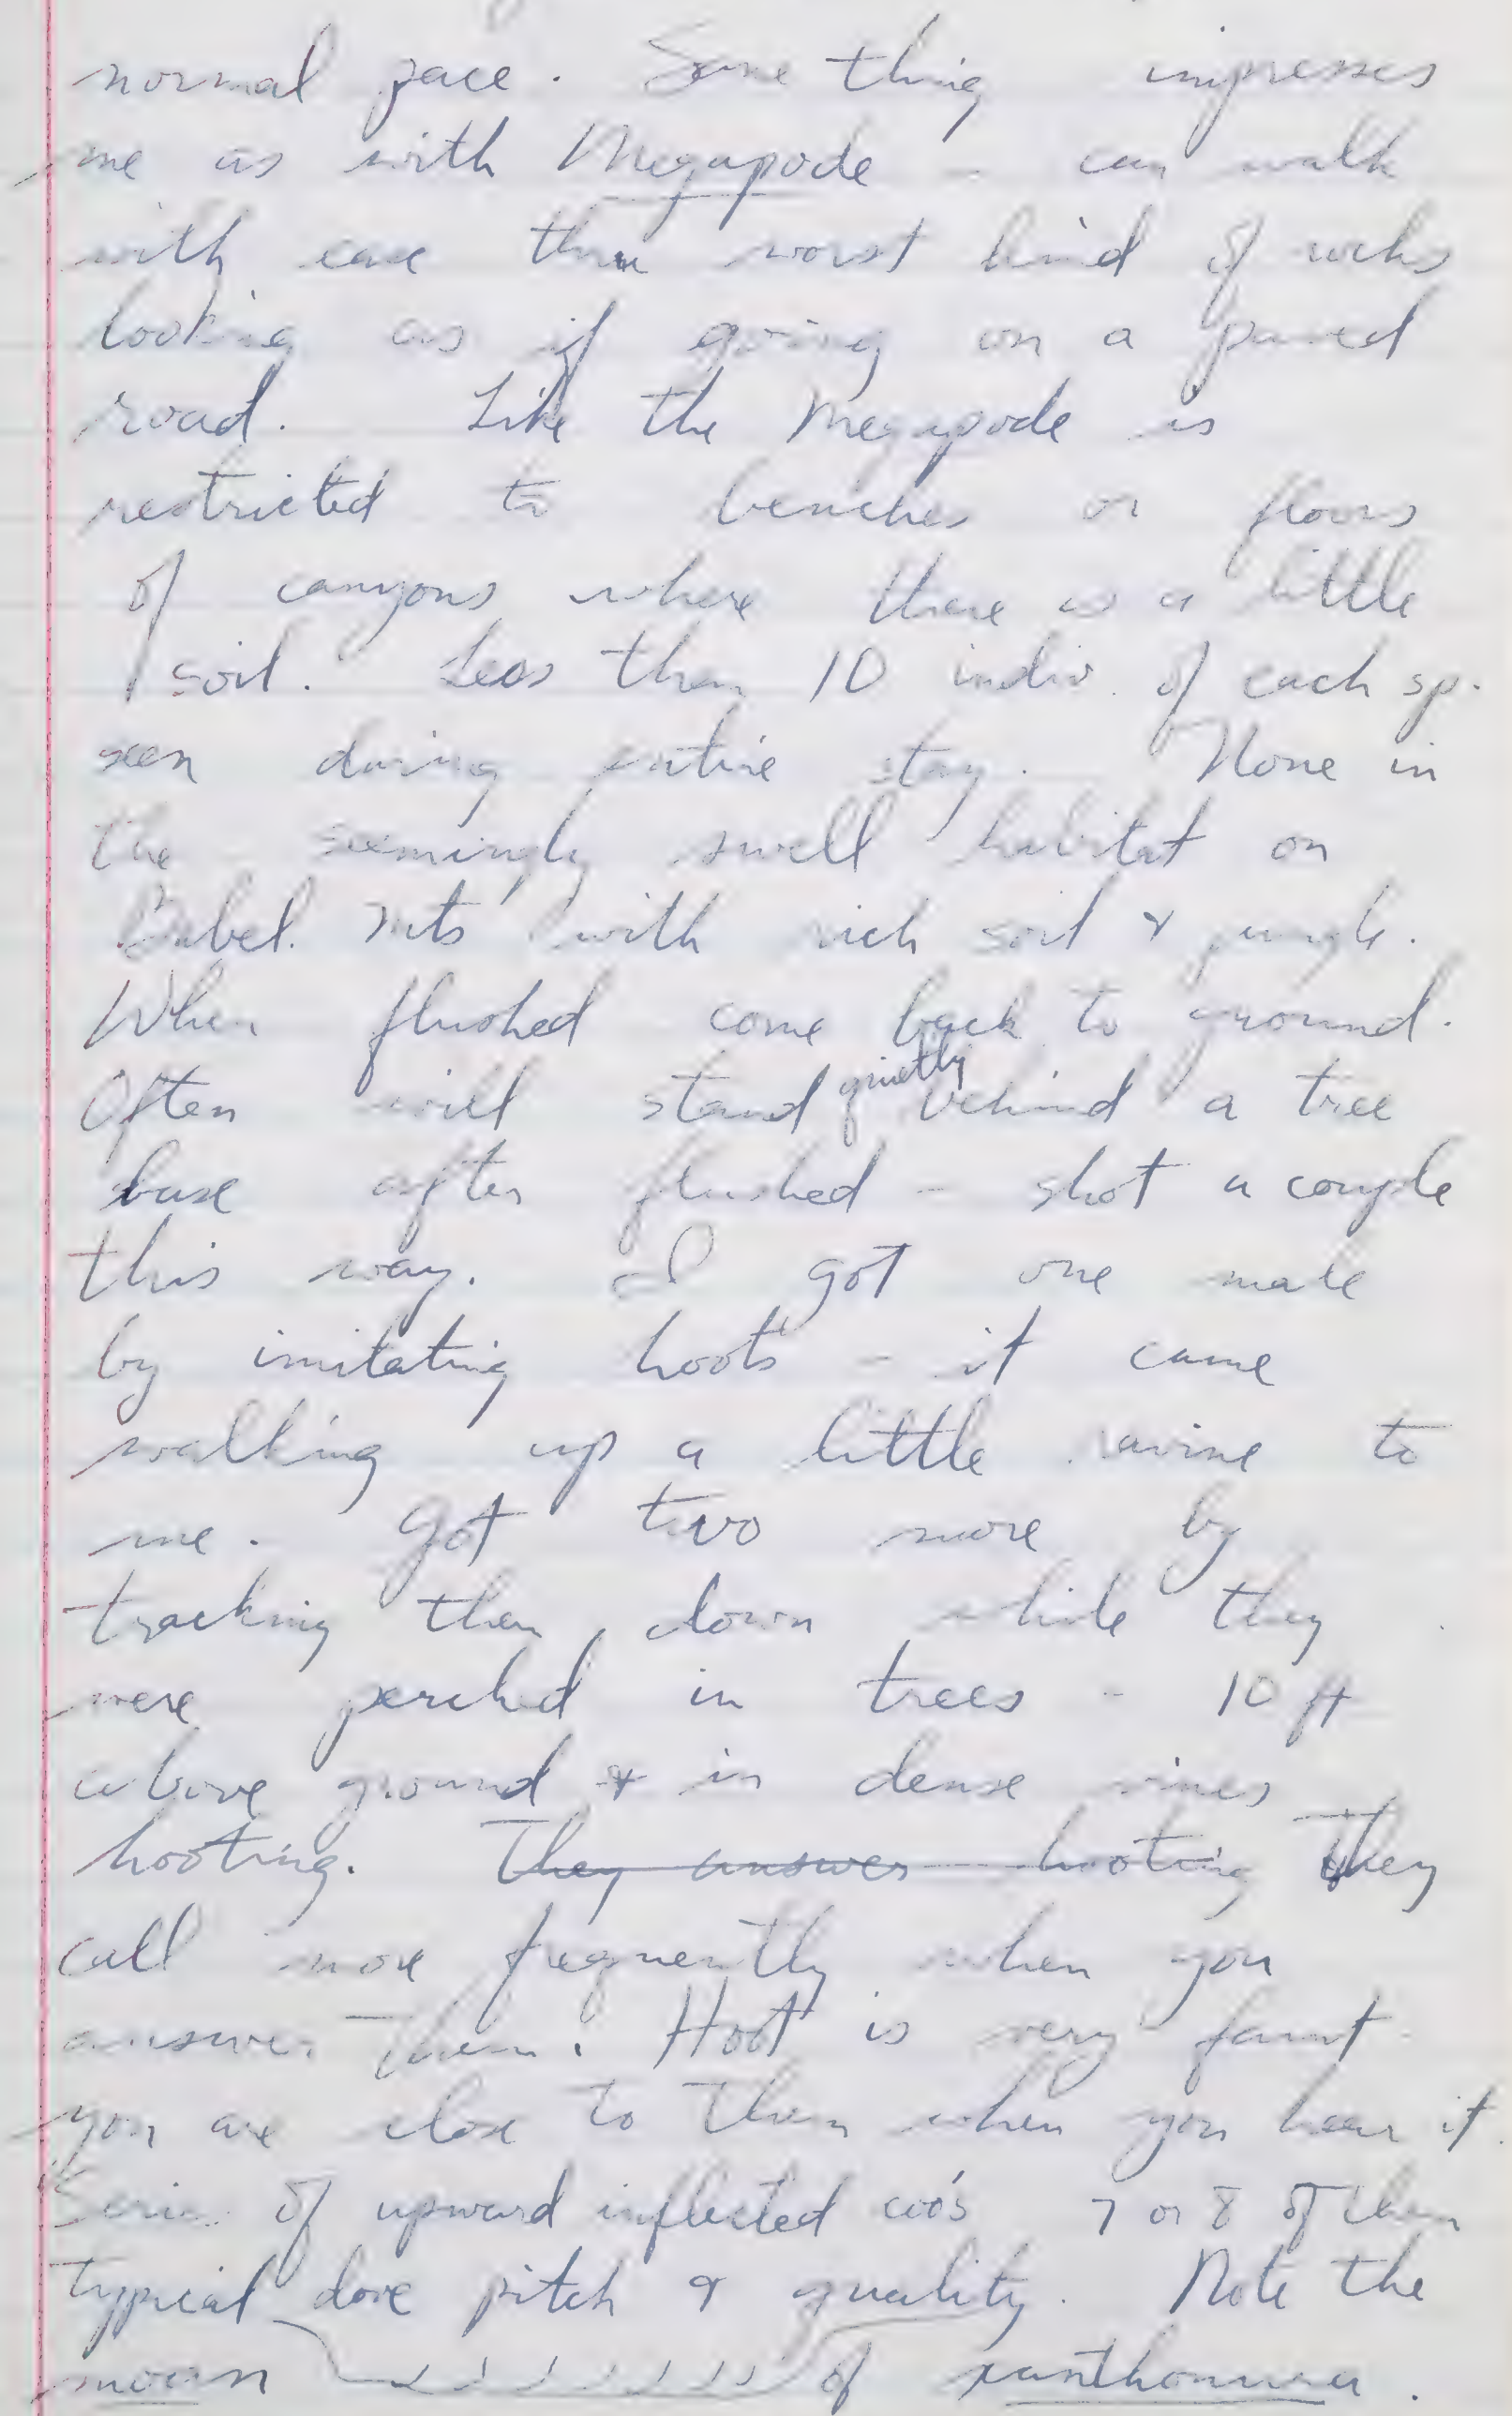 normal pace. Same thing impresses
me as with Megapode - can walk
with ease thru worst kind of rocks
looking as if going on a paved
road. Like the Megapode is
restricted to benches or floors
of canyons where there is a little
soil. Less than 10 indiv. of each sp.
seen during entire stay. None in
the seemingly swell habitat on
Babel. Mts with rich soil & jungle.
When flushed come back to ground.
Often will stand quietly behind a tree
base after flushed - shot a couple
this way. I got one male
by imitating hoots - it came
walking up a little ravine to
me. Got two more by
tracking them down while they
were perched in trees - 10 ft
above ground & in dense vines
hooting. They answer hooting They
call more frequently when you
answer them. Hoot is very faint
you are close to them when you hear it.
Series of upward inflected coo's 7 or 8 of them
typical dove pitch & quality. Note the
moan of xanthonura.